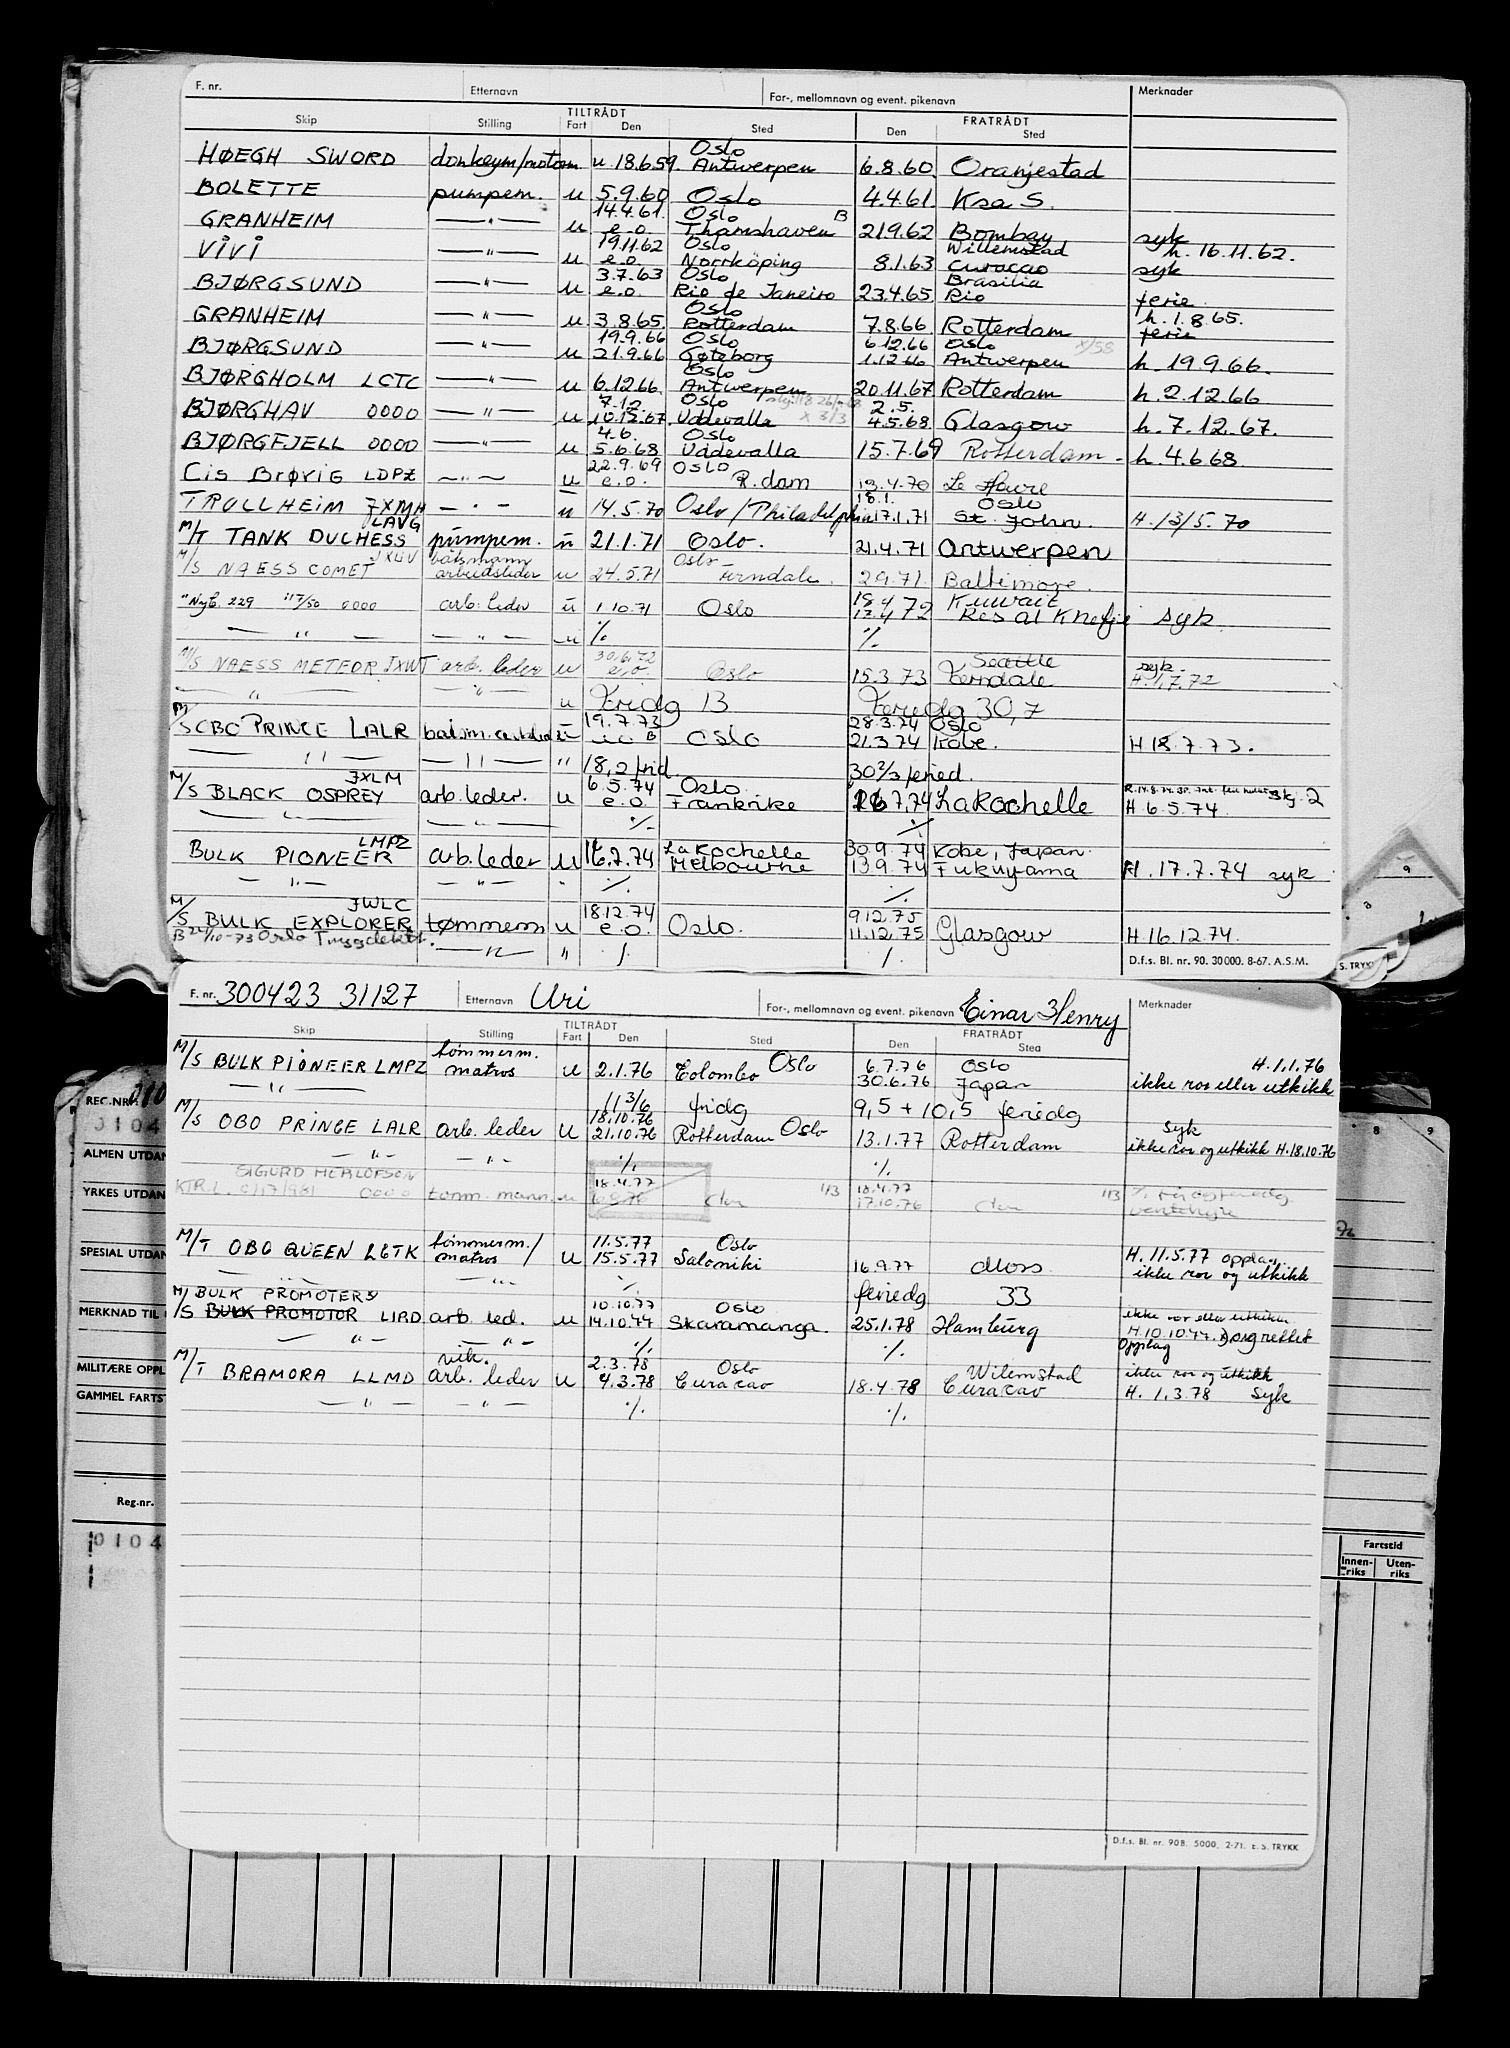 F. nr. Etternavn For-, mellomnavn og event. pikenavn Merknader
TILTRÅDT FRATRÅDT
Skip Stilling Fart Den Sted Den Sted
Oslo
HØEGH SWORD donkeym/motorm u 18.6.59. Antwerpen 6.8.60 Oranjestad
BOLETTE pumpem. u 5.9.60 Oslo 4.4.61 Ksa S.
14.4.61. Oslo B
GRANHEIM —"— u e.o. Thamshaven 21.9.62 Bombay syk
19.11.62 Oslo Willemstad h. 16.11.62.
VIVI —"— u e.o. Norrköping 8.1.63 Curacao syk
3.7.63 Oslo Brasilia
BJØRGSUND —"— u e.o. Rio de Janeiro 23.4.65 Rio ferie
Oslo h. 1.8.65.
GRANHEIM —"— u 3.8.65. Rotterdam 7.8.66 Rotterdam ferie
19.9.66 Oslo 6.12.66 Oslo x/58
BJØRGSUND —"— u 21.9.66 Gøteborg 1.12.66 Antwerpen h. 19.9.66.
Oslo
BJØRGHOLM LCTC —"— u 6.12.66. Antwerpen 20.11.67 Rotterdam h. 2.12.66
7.12. Oslo 2.5.
BJØRGHAV 0000 —"— u 10.12.67. Uddevalla x 3/3 4.5.68 Glasgow h. 7.12.67.
4.6. Oslo
BJØRGFJELL 0000 —"— u 5.6.68 Uddevalla 15.7.69 Rotterdam - h. 4.6.68.
22.9.69 Oslo
Cis Brøvig LDPZ —"— u e.o. R.dam 13.4.70 Le Havre
18.1. Oslo
TROLLHEIM JXMH —"— u 14.5.70 Oslo/Philadelphia 17.1.71 St. John. H. 13/5.70
LAVG
M/T TANK DUCHESS pumpem. u 21.1.71 Oslo. 21.4.71 Antwerpen
JXLV båtsmann Oslo -
M/S NAESS COMET arbeidsleder u 24.5.71 Ferndale. 2.9.71. Baltimore.
18.4 Kuwait
" Nyb. 229 "7/50 0000 arb. leder u 1.10.71 Oslo 17.4.72 Res al Khefji syk
— " — — " — u % %
30.6.72 Seattle syk.
M/S NAESS METEOR JXWT arb. leder u e.o. Oslo 15.3.73 Ferndale H. 1.7.72
— " — — " — u Fridg 13 Feriedg 30,7
19.7.73 28.3.74 Oslo
M/S OBO PRINCE LALR båtsm. arb.leder u B Oslo 21.3.74 Kobe. H 18.7.73.
— " — — " — " 18,2 frid. 30 2/3 feried.
JXLM 6.5.74 Oslo
M/S BLACK OSPREY arb.leder. u e.o. Frankrike 16.7.74 La Rochelle H 6.5.74.
— " — — " — % %
LMPZ La Rochelle 30.9.74 Kobe, Japan.
BULK PIONEER arb.leder u 16.7.74 Melbourne 13.9.74 Fukuyama H. 17.7.74 syk
— " — — " — " % %
JWLC 18.12.74 9.12.75
M/S BULK EXPLORER tømmerm u e.o. Oslo. 11.12.75 Glasgow H 16.12.74.
B 24/10-73 Oslo — " — " % %
D.f.s. Bl. nr. 90. 30000. 8-67. A.S.M.
S. TRYKK
F. nr. 300423 31127 Etternavn Uri For-, mellomnavn og event. pikenavn Einar Henry Merknader
TILTRÅDT FRATRÅDT
Skip Stilling Fart Den Sted Den Sted
tømmerm. H. 1.1.76
M/S BULK PIONEER LMPZ matros u 2.1.76 Colombo Oslo 6.7.76 Oslo
— " — 30.6.76 Japan ikke ror eller utkikk
11 3/6 fridg 9,5 + 10,5 feriedg
18.10.76 syk
M/S OBO PRINCE LALR arb. leder u 21.10.76 Rotterdam Oslo 13.1.77 Rotterdam ikke ror og utkikk H.18.10.76
— " — — " — % %
SIGURD HERLOFSON 18.4.77 18.4.77
0000 tømm. mann. u 113 17.10.76 113
tømmerm./ 11.5.77 Oslo
M/T OBO QUEEN LGTK matros u 15.5.77 Saloniki 16.9.77 Moss H. 11.5.77 opplag.
— " — — " — % feriedg 33 ikke ror og utkikk
M/S BULK PROMOTERS 10.10.77 Oslo ikke ror eller utkikk
BULK PROMOTOR LIRD arb. led. u 14.10.77 Skaramanga. 25.1.78 Hamburg H 10.10.77.
— " — — " — % % Opplag
vik. 2.3.78 Oslo Wilemstad ikke ror og utkikk
M/T BRAMORA LLMD arb. leder u 4.3.78 Curacao 18.4.78 Curacao H. 1.3.78 syk
— " — — " — % %
D.f.s. Bl. nr. 90B. 5000, 2-71. E.S. TRYKK
REG.NR. 010
0104
ALMEN UTDAN
YRKES UTDAN
SPESIAL UTDAN
MERKNAD TIL
MILITÆRE OPPL
GAMMEL FARTS
Reg.nr.
0104
8 9
Fartstid
Innen-riks Uten-riks